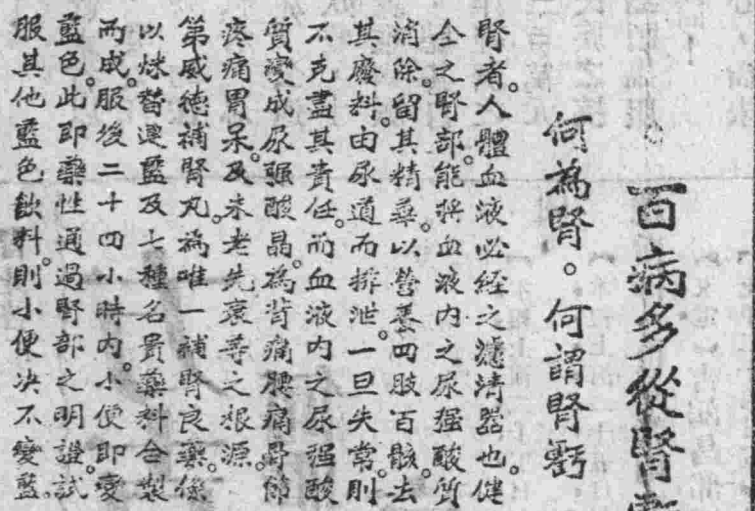 百病多從腎
何為腎。何謂腎虧
腎者。人體血液必經之濾清器也。健
全之腎部。能將血液內之尿強酸質
消除。留其精華。以營養四肢百骸。去
其廢料。由尿道而排泄。一旦失常。則
不克盡其責任。而血液內之尿強酸
質。變成尿強酸晶。為背痛腰痛骨節
疼痛胃呆。及未老先衰等之根源。
第威德補腎丸。為唯一補腎良藥。係
以煤替連藍及七種名貴藥料合製
而成。服後二十四小時內。小便即變
藍色。此即藥性通過腎部之明證。試
服其他藍色飲料。則小便決不變藍。